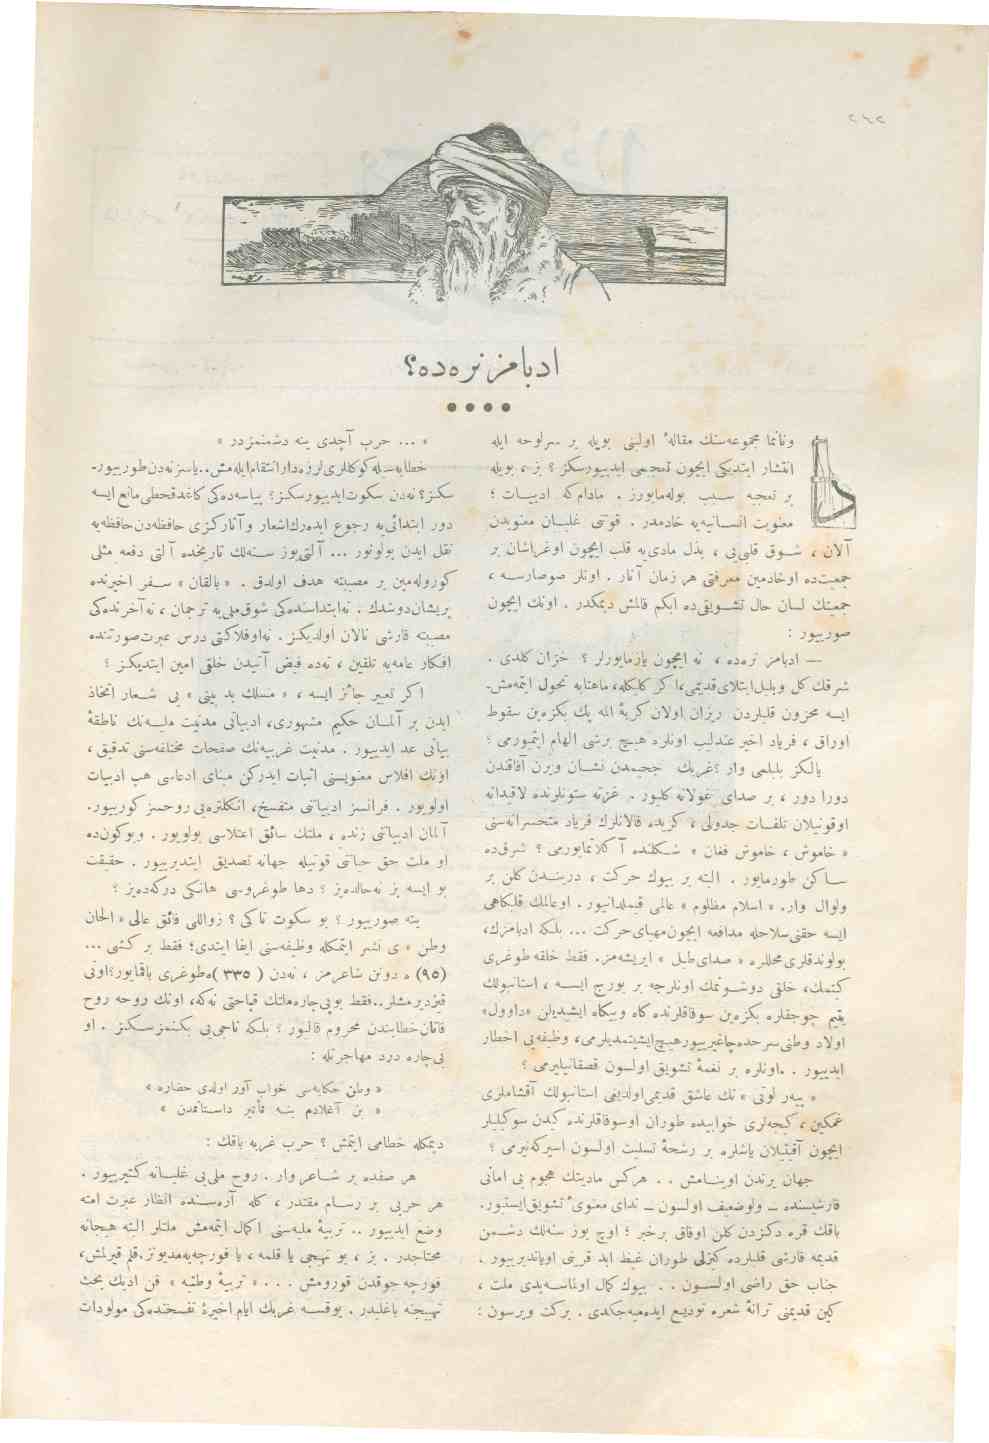 ادبامز نره‌ده؟
دوناما مجموعه‌سنك مقالهٔ اولینی بویله بر سرلوحه ایله
انتشار ایتدیکی ایچون تعجبمی ایدییورسکز ؟ بز ، بویله
بر تعجبه سبب بوله‌مایورز . مادام‌که ادبیات ؛
معنویت انسانیه‌یه خادمدر . قوتنی غلیان معنویدن
آلان ، شوق قلبی‌یی ، بذل مادی‌یه قلب ایچون اوغراشان بر
جمعیت‌ده اوخادمین معرفتی هر زمان آنار . اونلر صوصارسه ،
جمعیتك لسان حال تشویقی‌ده ابکم قالمش دیمکدر . اونك ایچون
صورییور :
— ادبامز نره‌ده ، نه ایچون یازمایورلر ؟ خزان کلدی .
شرقك کل وبلبل ابتلای قدیمی ، اکر کلبکله ، ماهتابه تحول ایتمه‌مش‌ـ
ایسه محزون قلبلردن ریزان اولان کریهٔ المه پك بکزه‌ین سقوط
اوراق ، فریاد اخیر عندلیب اونلره هیچ برشی الهام ایتمیورمی ؟
یالکز بلبلمی وار ؟ غربك جحیمدن نشان ویرن آفاقندن
دورا دور ، بر صدای غولانه کلیور . غزته ستونلرنده لاقیدانه
اوقونیلان تلفات جدولی ، کریده قالانلرك فریاد متحسرانه‌سنی
« خاموش ، خاموش فغان » شکلنده آ کلاتمایورمی ؟ شرق‌ده
ساکن طورمایور . البته بر بیوك حرکت ، دریندن کلن بر
ولوال وار . « اسلام مظلوم » عالمی قیملدانیور . اوعالمك قلبکاهی
ایسه حقنی سلاحله مدافعه ایچون مهیای حرکت ... بلکه ادبامزك ،
بولوندقلری محللره « صدای طبل » ایریشه‌مز . فقط خلقه طوغری
کیتمك ، خلقی دوشونمك اونلرجه بر بورج ایسه ، استانبولك
یقیم چوجقلره بکزه‌ین سوقاقلرنده کاه وبیکاه ایشیدیلن « داوول »
اولاد وطنی سرحده چاغیرییور هیچ ایشیتمدیلرمی ، وظیفه‌یی اخطار
ایدییور . . اونلره بر نغمهٔ تشویق اولسون قصقانیلیرمی ؟
« پیه‌ر لوتی » نك عاشق قدیمی اولدیغی استانبولك آقشاملری
غمکین ، کیجه‌لری خوابیده طوران اوسوقاقلرنده کیدن سوکیلیلر
ایچون آقیدیلان یاشلره بر رشحهٔ تسلیت اولسون اسیرکه‌نیرمی ؟
جهان یرندن اوینامش . . هرکس مادیتك هجوم بی امانی
قارشیسنده — ولوضعیف اولسون — ندای معنوی تشویق ایستیور.
باقك قره دکزدن کلن اوفاق برخبر ؛ اوچ یوز سنه‌لك دشمن
قدیمه قارشی قلبلرده کیزلی طوران غیظ ابد قرینی اویاندیرییور .
جناب حق راضی اولسون . . بیوك کمال اولماسه‌یدی ملت ،
کین قدیمنی ترانهٔ شعره تودیع ایده‌میه‌جکدی . برکت ویرسون :
« ... حرب آچدی ینه دشمنمزدر »
خطابه‌سیله کوکللری لرزه‌دار انتقام ایله‌مش .. یاسز نه‌دن طورییور‌ـ
سکز ؟ نه‌دن سکوت ایدییورسکز ؟ پیاسه‌ده‌کی کاغد قحطی مانع ایسه
دور ابتدائی‌یه رجوع ایده‌رك اشعار و آثارکزی حافظه‌دن حافظه‌یه
نقل ایدن بولونور ... آلتی‌یوز سنه‌لك تاریخده آلتی دفعه مثلی
کورولمه‌مین بر مصیبته هدف اولدق . « بالقان » سفر اخیرنده
پریشان دوشدك . نه ابتداسنده‌کی شوق ملی‌یه ترجمان ، نه آخرنده‌کی
مصیبته قارشی نالان اولدیکز . نه اوفلاکتی درس عبرت صورتنده
افکار عامه‌یه تلقین ، نه‌ده فیض آتیدن خلقی امین ایتدیکز ؟
اکر تعبیر جائز ایسه ، « مسلك بد بینی » یی شعار اتخاذ
ایدن بر آلمان حکیم مشهوری ، ادبیاتی مدنیت ملیه‌نك ناطقهٔ
بیانی عد ایدییور . مدنیت غربیه‌نك صفحات مختلفه‌سنی تدقیق ،
اونك افلاس معنویسنی اثبات ایدرکن مبنای ادعاسی هپ ادبیات
اولویور . فرانسز ادبیاتنی متفسخ ، انکلتره‌یی روحسز کورییور.
آلمان ادبیاتنی زنده ، ملتك سائق اعتلاسی بولویور . وبوکون‌ده
او ملت حق حیاتنی قوتیله جهانه تصدیق ایتدیرییور . حقیقت
بو ایسه بز نه‌حالده‌یز ؟ دها طوغروسی هانکی درکه‌ده‌یز ؟
ینه صورییور ؟ بو سکوت ناکی ؟ زواللی فائق عالی « الحان
وطن » ی نشر ایتمکله وظیفه‌سنی ایفا ایتدی ؛ فقط بر کشی ...
(٩٥) ه دونن شاعرمز ، نه‌دن (٣٣٥) ه طوغری باقمایور ؟ اونی
قیزدیرمشلر .. فقط بوبی‌چاره ملتك قباحتی نه‌که ، اونك روحه روح
قاتان خطابندن محروم قالیور ؟ بلکه ناجی‌یی بکنمزسکز . او
بی‌چاره درد مهاجرتله :
« وطن حکایه‌سی خواب آور اولدی حضاره »
« بن آغلادم ینه تأثیر داستانمدن »
دیمکله خطامی ایتمش ؟ حرب غربه باقك :
هر صفده بر شاعر وار . روح ملی‌یی غلیانه کتیرییور .
هر حربی بر رسام مقتدر ، کله آره‌سنده انظار عبرت امته
وضع ایدییور .. تربیهٔ ملیه‌سنی اکمال ایتمه‌مش ملتلر البته هیجانه
محتاجدر . بز ، بو تهیجی یا قلمه ، یا فورچه‌یه مدیونز. قلم قیرلمش ،
فورچه چوقدن قورومش . . . « تربیهٔ وطنیه » فن ادبك بحث
تهییجنه باغلیدر . یوقسه غربك ایام اخیرهٔ نفسخنده‌کی مولودات